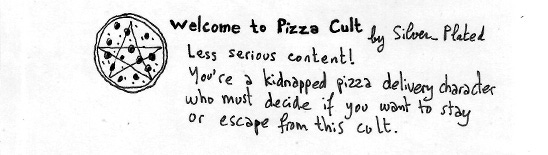 Welcome to Pizza Cult by Silver Plated
Less serious content!
You're a kidnapped pizza delivery character
who must decide if you want to stay
or escape from this cult.